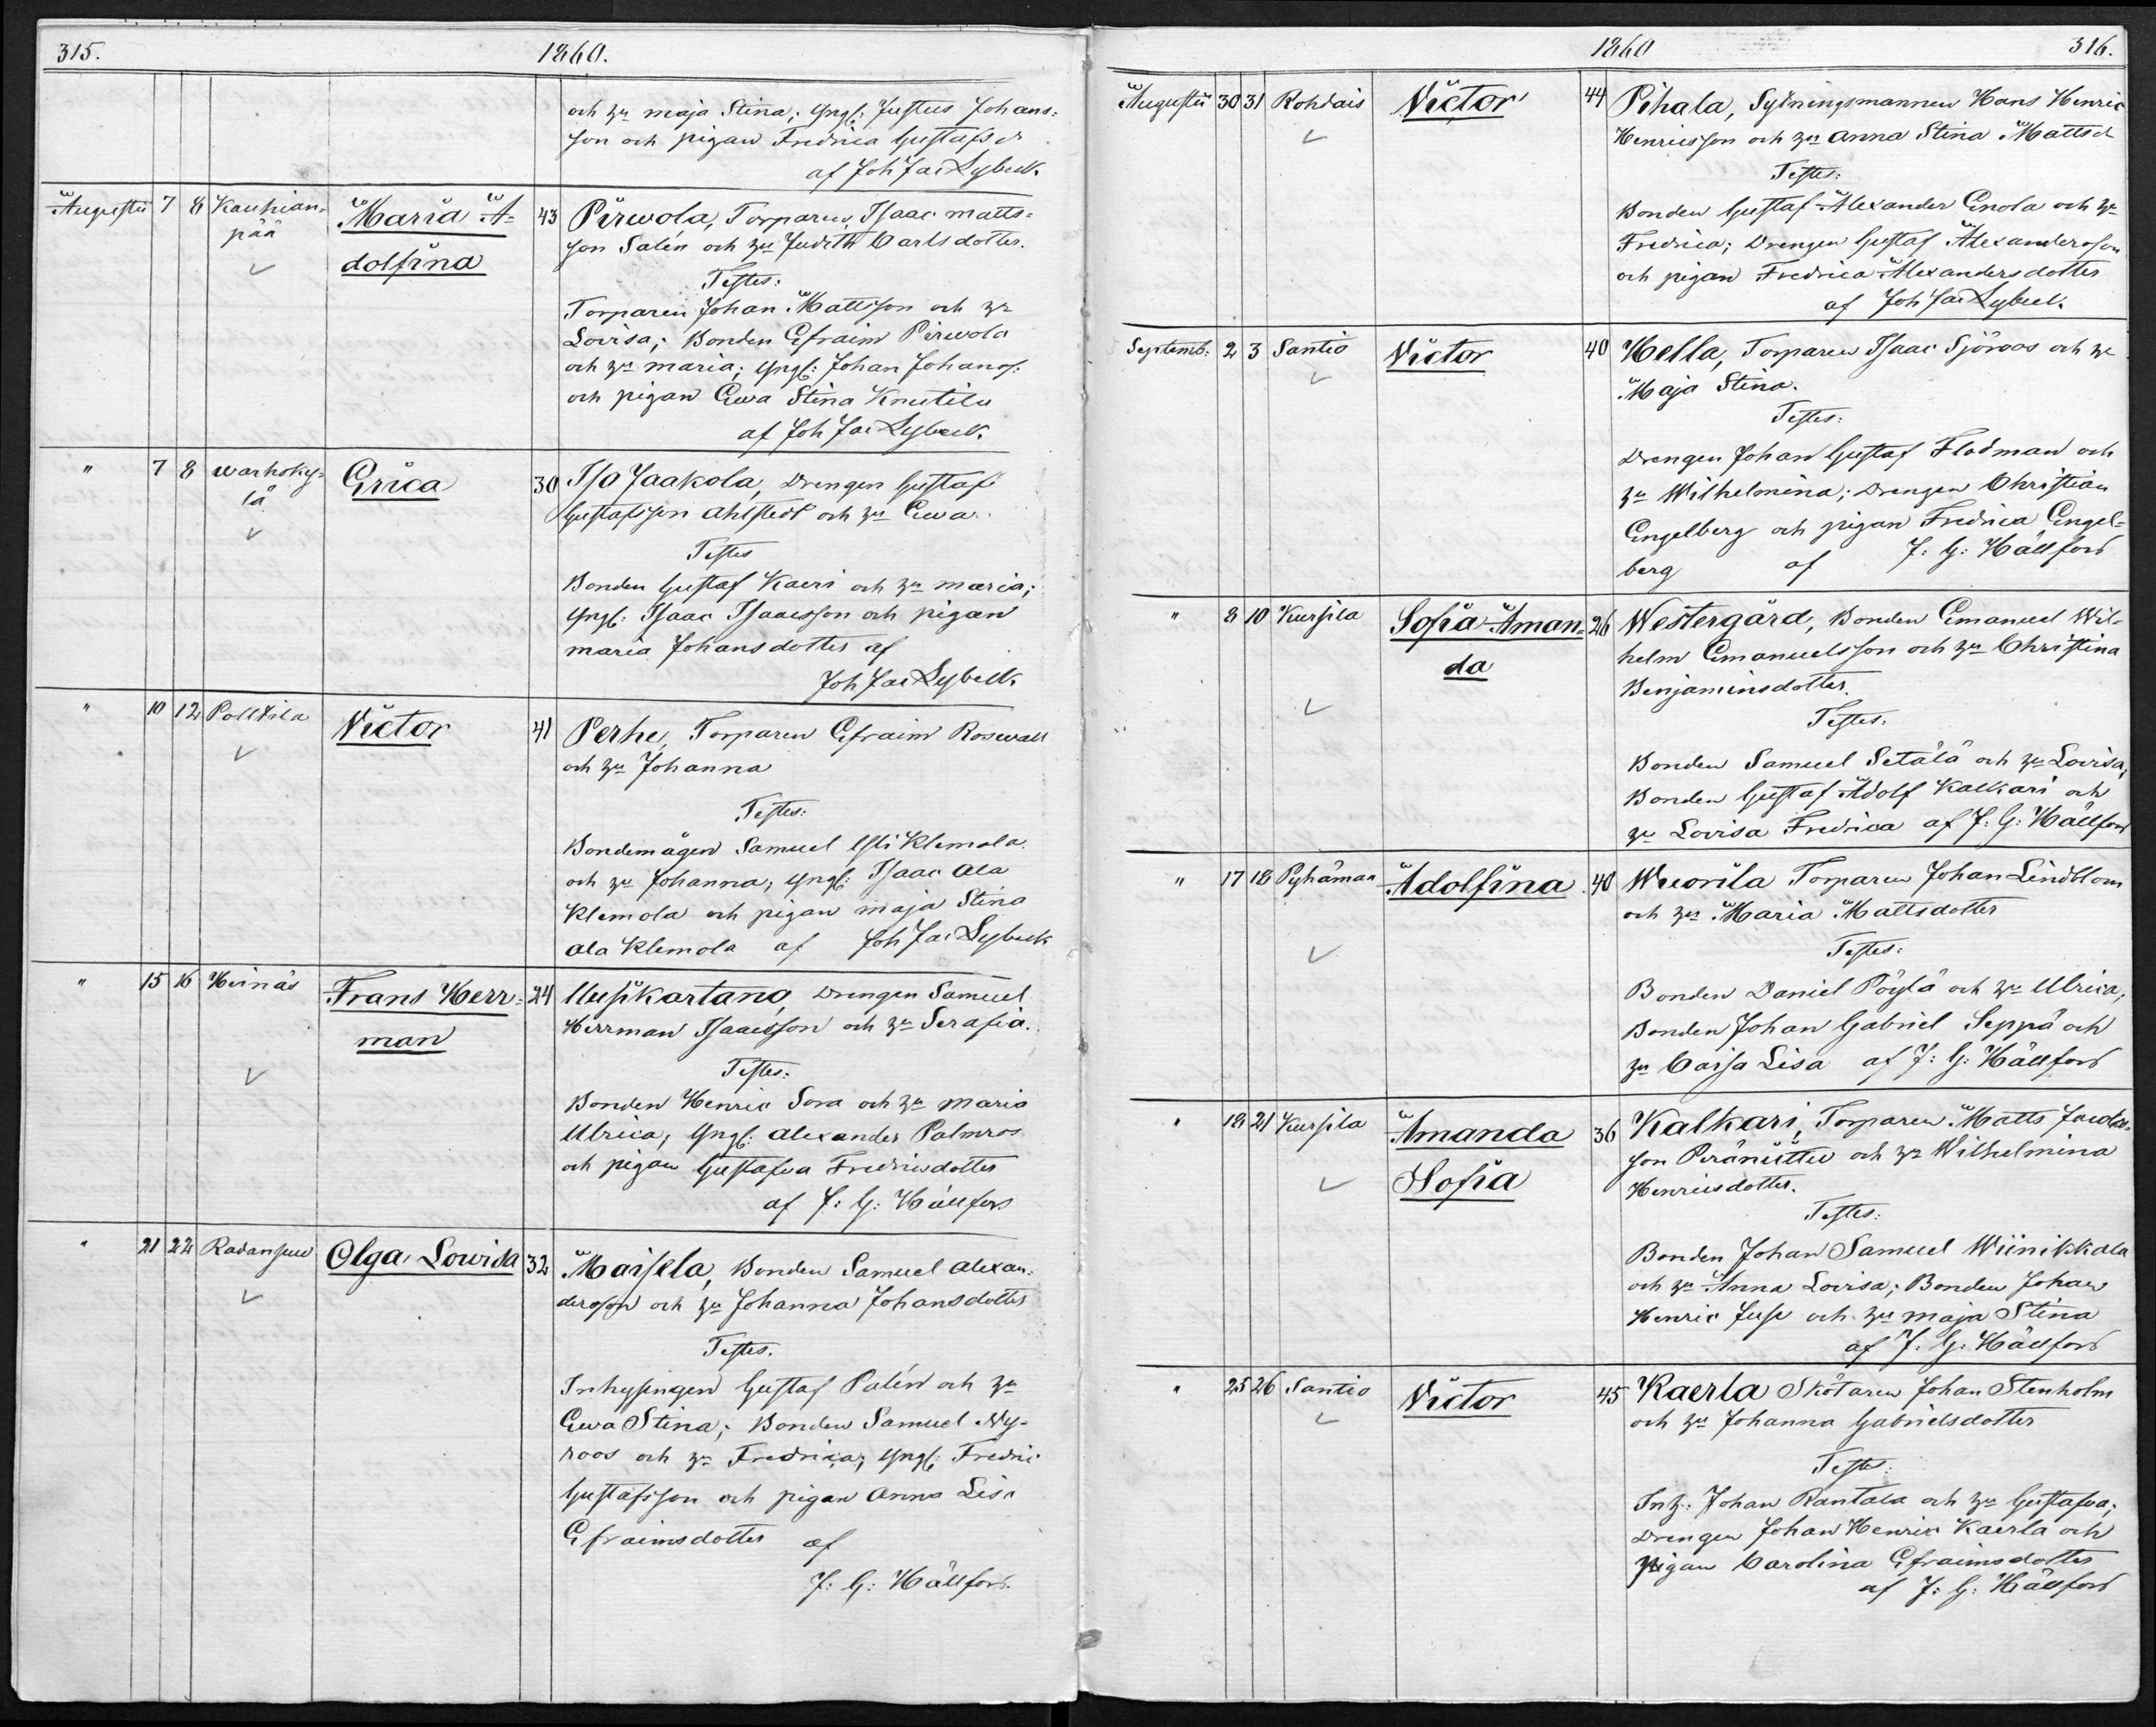 315.
1860.
och hu maja Stina; Yngl: Justus Johans=
son och pigan Fredrica Gustafsd:r
af Joh Jac Lybeck.
Augusti 7 8 Kauhian= Maria A= 43 Pirwola, Torparen Isaac matts=
pää dolfina son Salén och hu Judith Carlsdotter.
Testes:
Torparen Johan Mattsson och hu
Lovisa; Bonden Efraim Pirwola
och hu maria; Yngl: Johan Johans:
och pigan Ewa Stina Knutila
af Joh Jac Lybeck.
" 7 8 warhoky= Erica 30 Iso Jaakola, Drengen Gustaf
lä Gustafsson Ahlstedt och hu Ewa.
Testes
Bonden Gustaf Kaeri och hu maria;
Yngl: Isaac Isaacsson och pigan
maria Johansdotter af
Joh Jac Lybeck.
" 10 12 Polttila Victor 41 Perhe, Torparen Efraim Roswall
och hu Johanna
Testes:
Bondemågen Samuel Ylli Klemola
och hu Johanna; Yngl: Isaac Ala
Klemola och pigan maja Stina
Ala Klemola af Joh Jac Lybeck
" 15 16 Heinäs Frans Herr= 24 Uusikartano, Drengen Samuel
man Herrman Isaacsson och hu Serafia.
Testes:
Bonden Henric Sora och hu maria
Ulrica; Yngl: Alexander Palmros
och pigan Gustafva Fredricsdotter
af J: G: Hällfors
" 21 22 Radansuu Olga Lowisa 32 Maisela, Bonden Samuel Alexan=
dersson och hu Johanna Johansdotter
Testes.
Inhysingen Gustaf Palén och hu
Ewa Stina; Bonden Samuel Ny=
roos och hu Fredrica; Yngl: Fredric
Gustafsson och pigan Anna Lisa
Efraimsdotter af
J: G: Hällfors.
1860 316.
Augusti 30 31 Rohdais Victor 44 Pihala, Sytningsmannen Hans Henric
Henricsson och hu Anna Stina Mattsd
Testes:
Bonden Gustaf Alexander Enola och hu
Fredrica; Drengen Gustaf Alexandersson
och pigan Fredrica Alexandersdotter
af Joh Jac Lybeck.
Septemb: 2 3 Santio Victor 40 Hella, Torparen Isaac Sjöroos och hu
Maja Stina.
Testes:
Drengen Johan Gustaf Flodman och
hu Wilhelmina; Drengen Christian
Engelberg och pigan Fredrica Engel=
berg af J: G: Hällfors
" 8 10 Kursila Sofia Aman= 26 Westergård, Bonden Emanuel Wil=
da helm Emanuelsson och hu Christina
Benjaminsdotter.
Testes:
Bonden Samuel Setälä och hu Lovisa;
Bonden Gustaf Adolf Kalkari och
hu Lovisa Fredrica af J: G: Hällfors
" 17 18 Pyhämaa Adolfina 40 Wuorila Torparen Johan Lindblom
och hu Maria Mattsdotter
Testes:
Bonden Daniel Pöylä och hu Ulrica;
Bonden Johan Gabriel Seppä och
hu Caisa Lisa af J: G: Hällfors
" 18 21 Kursila Amanda 36 Kalkari, Torparen Matts
Sofia son Peräniittu och hu Wilhelmina
Henricsdotter.
Testes:
Bonden Johan Samuel Wiinikkala
och hu Anna Lovisa; Bonden Johan
Henric Juse och hu maja Stina
af J. G. Hällfors
" 25 26 Santio Victor 45 Kaerla Skötaren Johan Stenholm
och hu Johanna Gabrielsdotter
Testes:
Inh: Johan Rantala och hu Gustafva;
Drengen Johan Henric Kaerla och
Pigan Carolina Efraimsdotter
af J: G: Hällfors